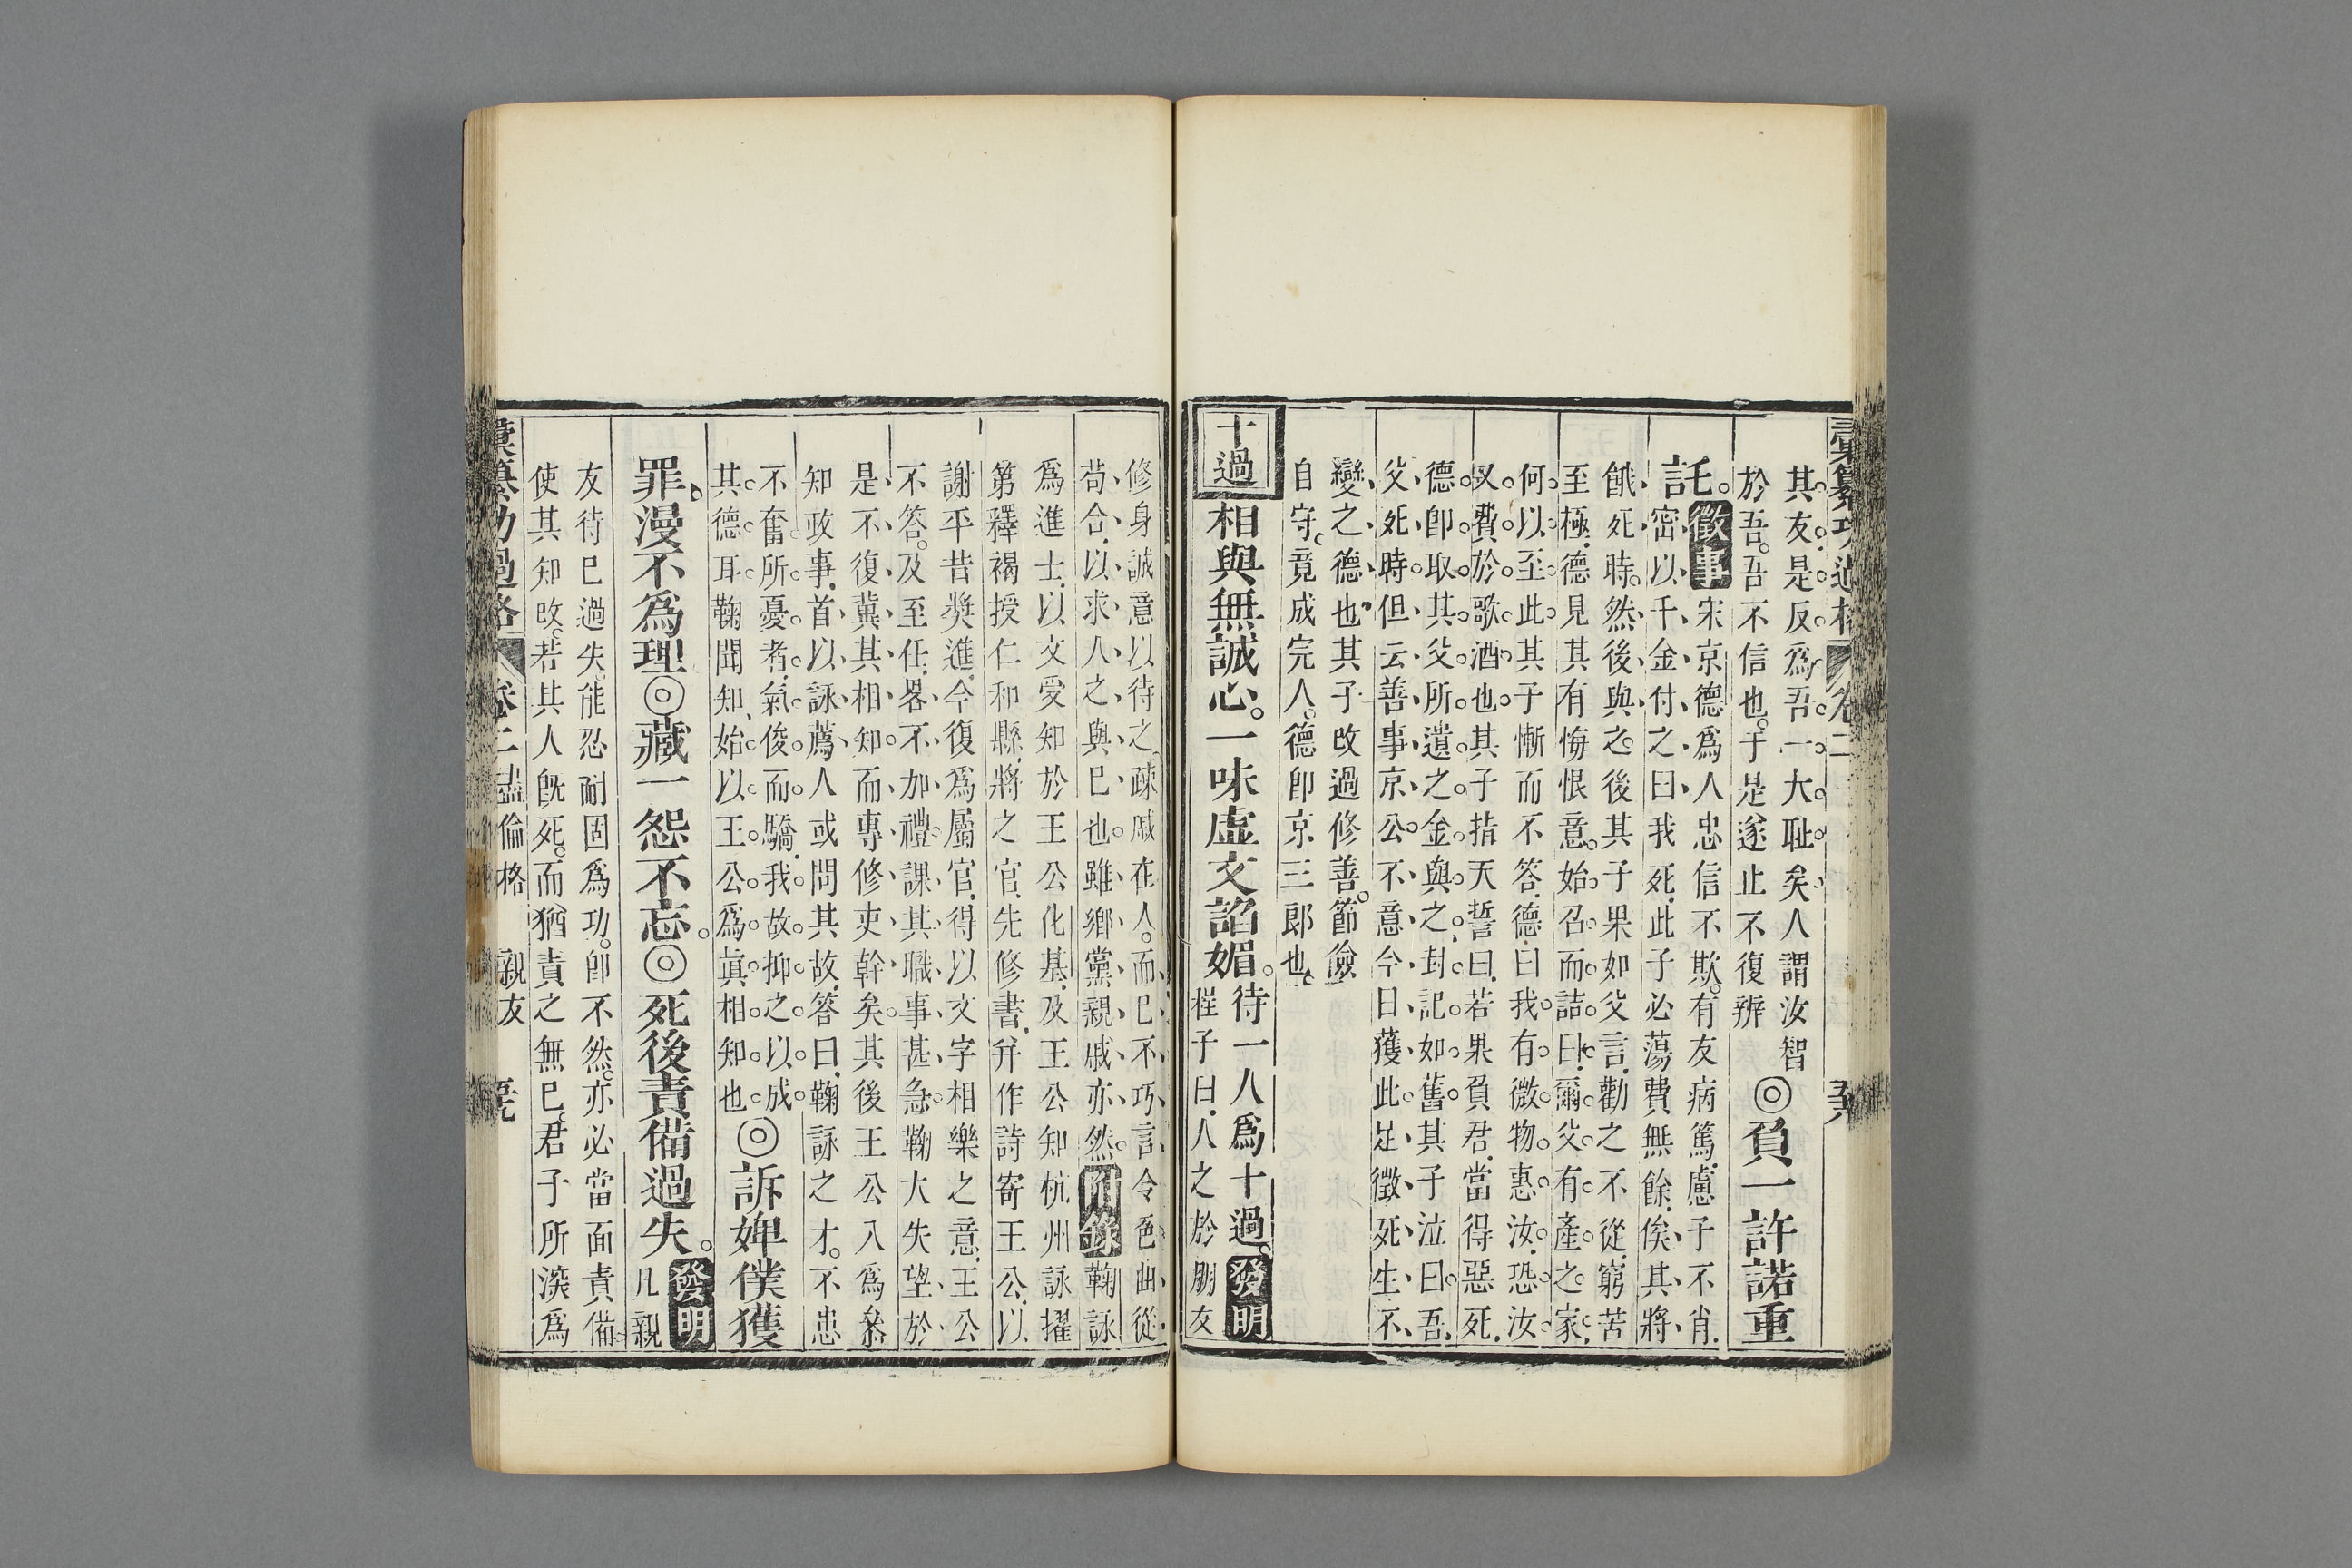 彙纂功過格 卷二
其友。是反爲吾一大耻矣。人謂汝智
於吾。吾不信也。于是遂止不復辨
◎負一許諾重
託。
徵事
宋京德爲人忠信不欺。有友病篤。慮子不肖。
密以千金付之曰。我死。此子必蕩費無餘。俟其將
餓死時。然後與之。後其子果如父言。勸之不從。窮苦
至極。德見其有悔恨意。始召而詰曰。爾父有產之家。
何以至此。其子慚而不答。德曰。我有微物惠汝。恐汝
又費於歌酒也。其子指天誓曰。若果負君。當得惡死。
德卽取其父所遺之金與之。封記如舊。其子泣曰。吾
父死時但云善事京公。不意今日獲此。足徵死生不
變之德也。其子改過修善。節儉
自守。竟成完人。德卽京三郎也。
十過
相與無誠心。一味虛文諂媚。
待一人爲十過。
發明
程子曰。人之於朋友
修身誠意以待之。疎戚在人。而巳不巧言令色曲從
苟合。以求人之與巳也。雖鄉黨親戚亦然。
附錄
鞠詠
爲進士。以文受知於王公化基。及王公知杭州。詠擢
第釋褐。授仁和縣。將之官。先修書。幷作詩寄王公。以
謝平昔奬進。今復爲屬官。得以文字相樂之意。王公
不答。及至任。畧不加禮。課其職事甚急。鞠大失望。於
是不復冀其相知。而專修吏幹矣。其後王公入爲叅
知政事。首以詠薦。人或問其故。答曰。鞠詠之才。不患
不奮。所憂者。氣俊而驕。我故抑之。以成
其德耳。鞠聞知。始以王公爲眞相知也。
◎訴婢僕獲
罪。漫不爲理◎藏一怨不忘。◎死後責備過失。
發明
凡親
友待巳過失。能忍耐固爲功。卽不然。亦必當面責備。
使其知改。若其人旣死。而猶責之無巳。君子所深爲
彙纂功過格 卷二 盡倫格 親友